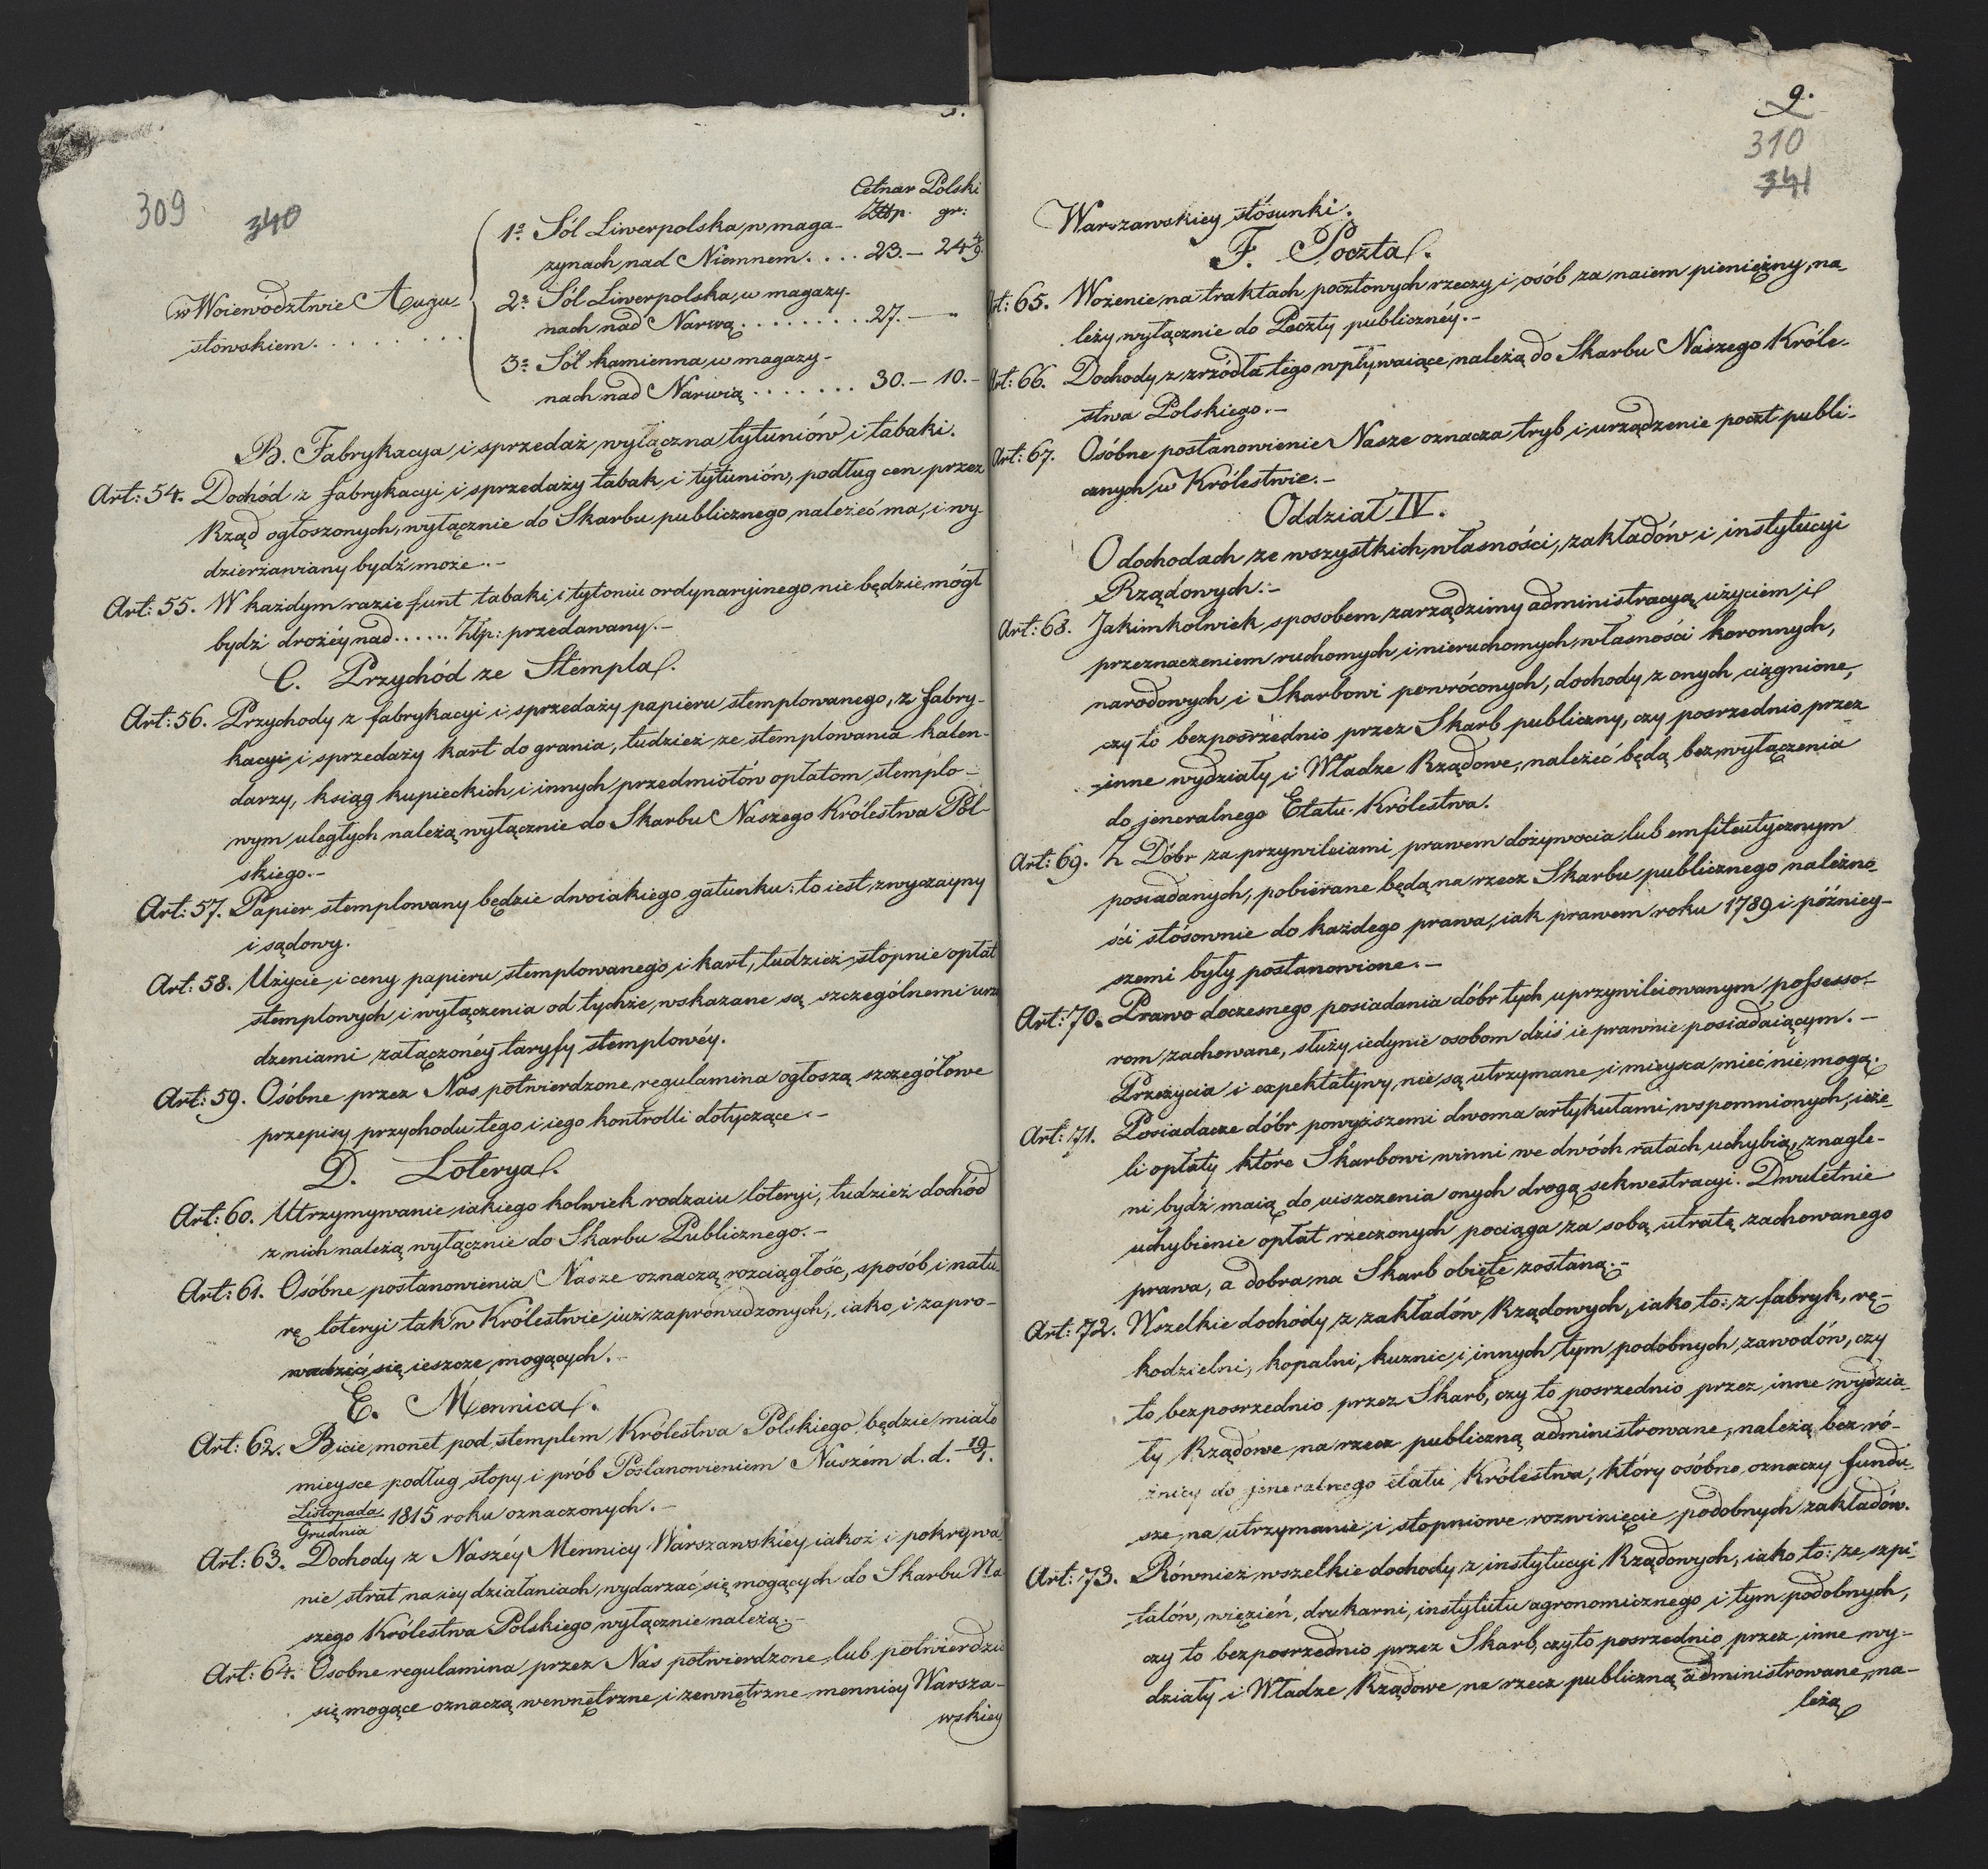 309 340
Cetnar Polski
Złłp. gr:
w Woiewództwie Augu-
stowskiem . . . . . . . . .
1º Sól Liwerpolska, w maga-
zynach, nad Niemnem . . . . 23. — 24 4/9.
2º Sól Liwerpolska, w magazy-
nach nad Narwą . . . . . . . . . 27. — „
3º Sól kamienna, w magazy-
nach nad Narwią . . . . . . . 30. — 10. —
B. Fabrykacya, i sprzedaż, wyłączna tytuniów i tabaki.
Art: 54. Dochód z fabrykacyi i sprzedaży tabak i tytuniów, podług cen przez
Rząd ogłoszonych, wyłącznie do Skarbu publicznego należeć ma, i wy-
dzierżawiany bydź może. -
Art: 55. W każdym razie funt tabaki, i tytoniu ordynaryjnego nie będzie mógł
bydź drożéy nad . . . . . . Złp: przedawany. -
C. Przychód ze Stempla.
Art: 56. Przychody z fabrykacyi i sprzedaży papieru stemplowanego, z fabry-
kacyi i sprzedaży kart do grania, tudzież ze stemplowania kalen-
darzy, ksiąg kupieckich, i innych przedmiotów opłatom, stemplo-
wym uległych należą wyłącznie do Skarbu Naszego Królestwa Pol-
skiego. -
Art: 57. Papier stemplowany będzie dwoiakiego gatunku: to iest, zwyczayny
i sądowy.
Art: 58. Użycie, i ceny papieru stemplowanego, i kart, tudzież stopnie opłat
stemplowych, i wyłączenia od tychże, wskazane są szczególnemi urzą
dzeniami załączonéy taryfy stemplowéy.
Art: 59. Osóbne przez Nas potwierdzone regulamina ogłoszą szczegółowe
przepisy przychodu tego i iego kontrolli dotyczące. -
D. Loterya.
Art: 60. Utrzymywanie iakiego kolwiek rodzaiu loteryi, tudzież dochód
z nich należą wyłącznie do Skarbu Publicznego. -
Art: 61. Osóbne postanowienia Nasze oznaczą rozciągłość, sposób, i natu-
rę loteryi tak w Królestwie iuż zaprowadzonych, iako i zapro-
wadzić się ieszcze mogących. -
E. Mennica.
Art: 62. Bicie, monet pod stemplem Królestwa Polskiego będzie miało
mieysce podług stopy i prób Postanowieniem Naszém d. d. 19/1.
Listopada/Grudnia 1815 roku oznaczonych. -
Art: 63. Dochody z Naszéy Mennicy Warszawskiey, iakoż i pokrywa
nie strat na iey działaniach, wydarzać się mogących do Skarbu Na
szego Królestwa Polskiego wyłącznie należą. -
Art: 64. Osobne regulamina przez Nas potwierdzone, lub potwierdzić
się mogące oznaczą wewnętrzne, i zewnętrzne mennicy Warsza-
wskiey
9.
310
341
Warszawskiey stósunki.
F. Poczta.
Art: 65. Wożenie na traktach pocztowych rzeczy i osób za naiem pieniężny, na-
leży wyłącznie do Poczty publicznéy. -
Art: 66. Dochody z źrzódła tego wpływaiące, należą do Skarbu Naszego Króle-
stwa Polskiego. -
Art: 67. Osóbne postanowienie Nasze oznacza tryb i urządzenie poczt publi-
cznych w Królestwie. -
Oddział IV.
O dochodach ze wszystkich własności, zakładów i instytucyi
Rządowych. -
Art: 68. Jakimkolwiek sposobem zarządzimy administracyą użyciem i
przeznaczeniem ruchomych i nieruchomych własności koronnych,
narodowych i Skarbowi powróconych, dochody z onych ciągnione,
czy to bezpośrzednio przez Skarb publiczny, czy posrzednio przez
inne wydziały i Władze Rządowe, należeć będą bez wyłączenia
do jeneralnego Etatu Królestwa.
Art: 69. Z Dóbr za przywileiami prawem dożywocia lub emfiteutycznym
posiadanych, pobierane będą na rzecz Skarbu publicznego należno-
ści stósownie do każdego prawa, iak prawem roku 1789 i późniey-
szemi były postanowione. -
Art: 70. Prawo doczesnego posiadania dóbr tych uprzywileiowanym possesso-
rom zachowane, służy iedynie osobom dziś ie prawnie posiadaiącym. -
Przeżycia i expektatywy, nie są utrzymane i mieysca mieć nie mogą.
Art: 71. Posiadacze dóbr powyższemi dwoma artykułami wspomnionych, ieże-
li opłaty które Skarbowi winni we dwóch ratach uchybią, znagle-
ni bydź maią do uiszczenia onych drogą sekwestracyi. Dwuletnie
uchybienie opłat rzeczonych pociąga za sobą utratę zachowanego
prawa, a dobra na Skarb obięte zostaną. -
Art: 72. Wszelkie dochody z zakładów Rządowych, iako to: z fabryk, rę-
kodzielni, kopalni, kuznic, i innych tym podobnych, zawodów, czy
to bezposrzednio przez Skarb, czy to posrzednio przez inne wydzia-
ły Rządowe na rzecz publiczną administrowane, należą bez ró-
żnicy do jeneralnego etatu Królestwa, który osóbno oznaczy fundu-
sze, na utrzymanie, i stopniowe rozwinięcie podobnych zakładów.
Art: 73. Również wszelkie dochody z instytucyi Rządowych, iako to: ze szpi-
talów, więzień, drukarni, instytutu agronomicznego i tym podobnych,
czy to bezposrzednio przez Skarb, czy to posrzednio przez inne wy-
działy i Władze Rządowe na rzecz publiczną administrowane, na-
leżą